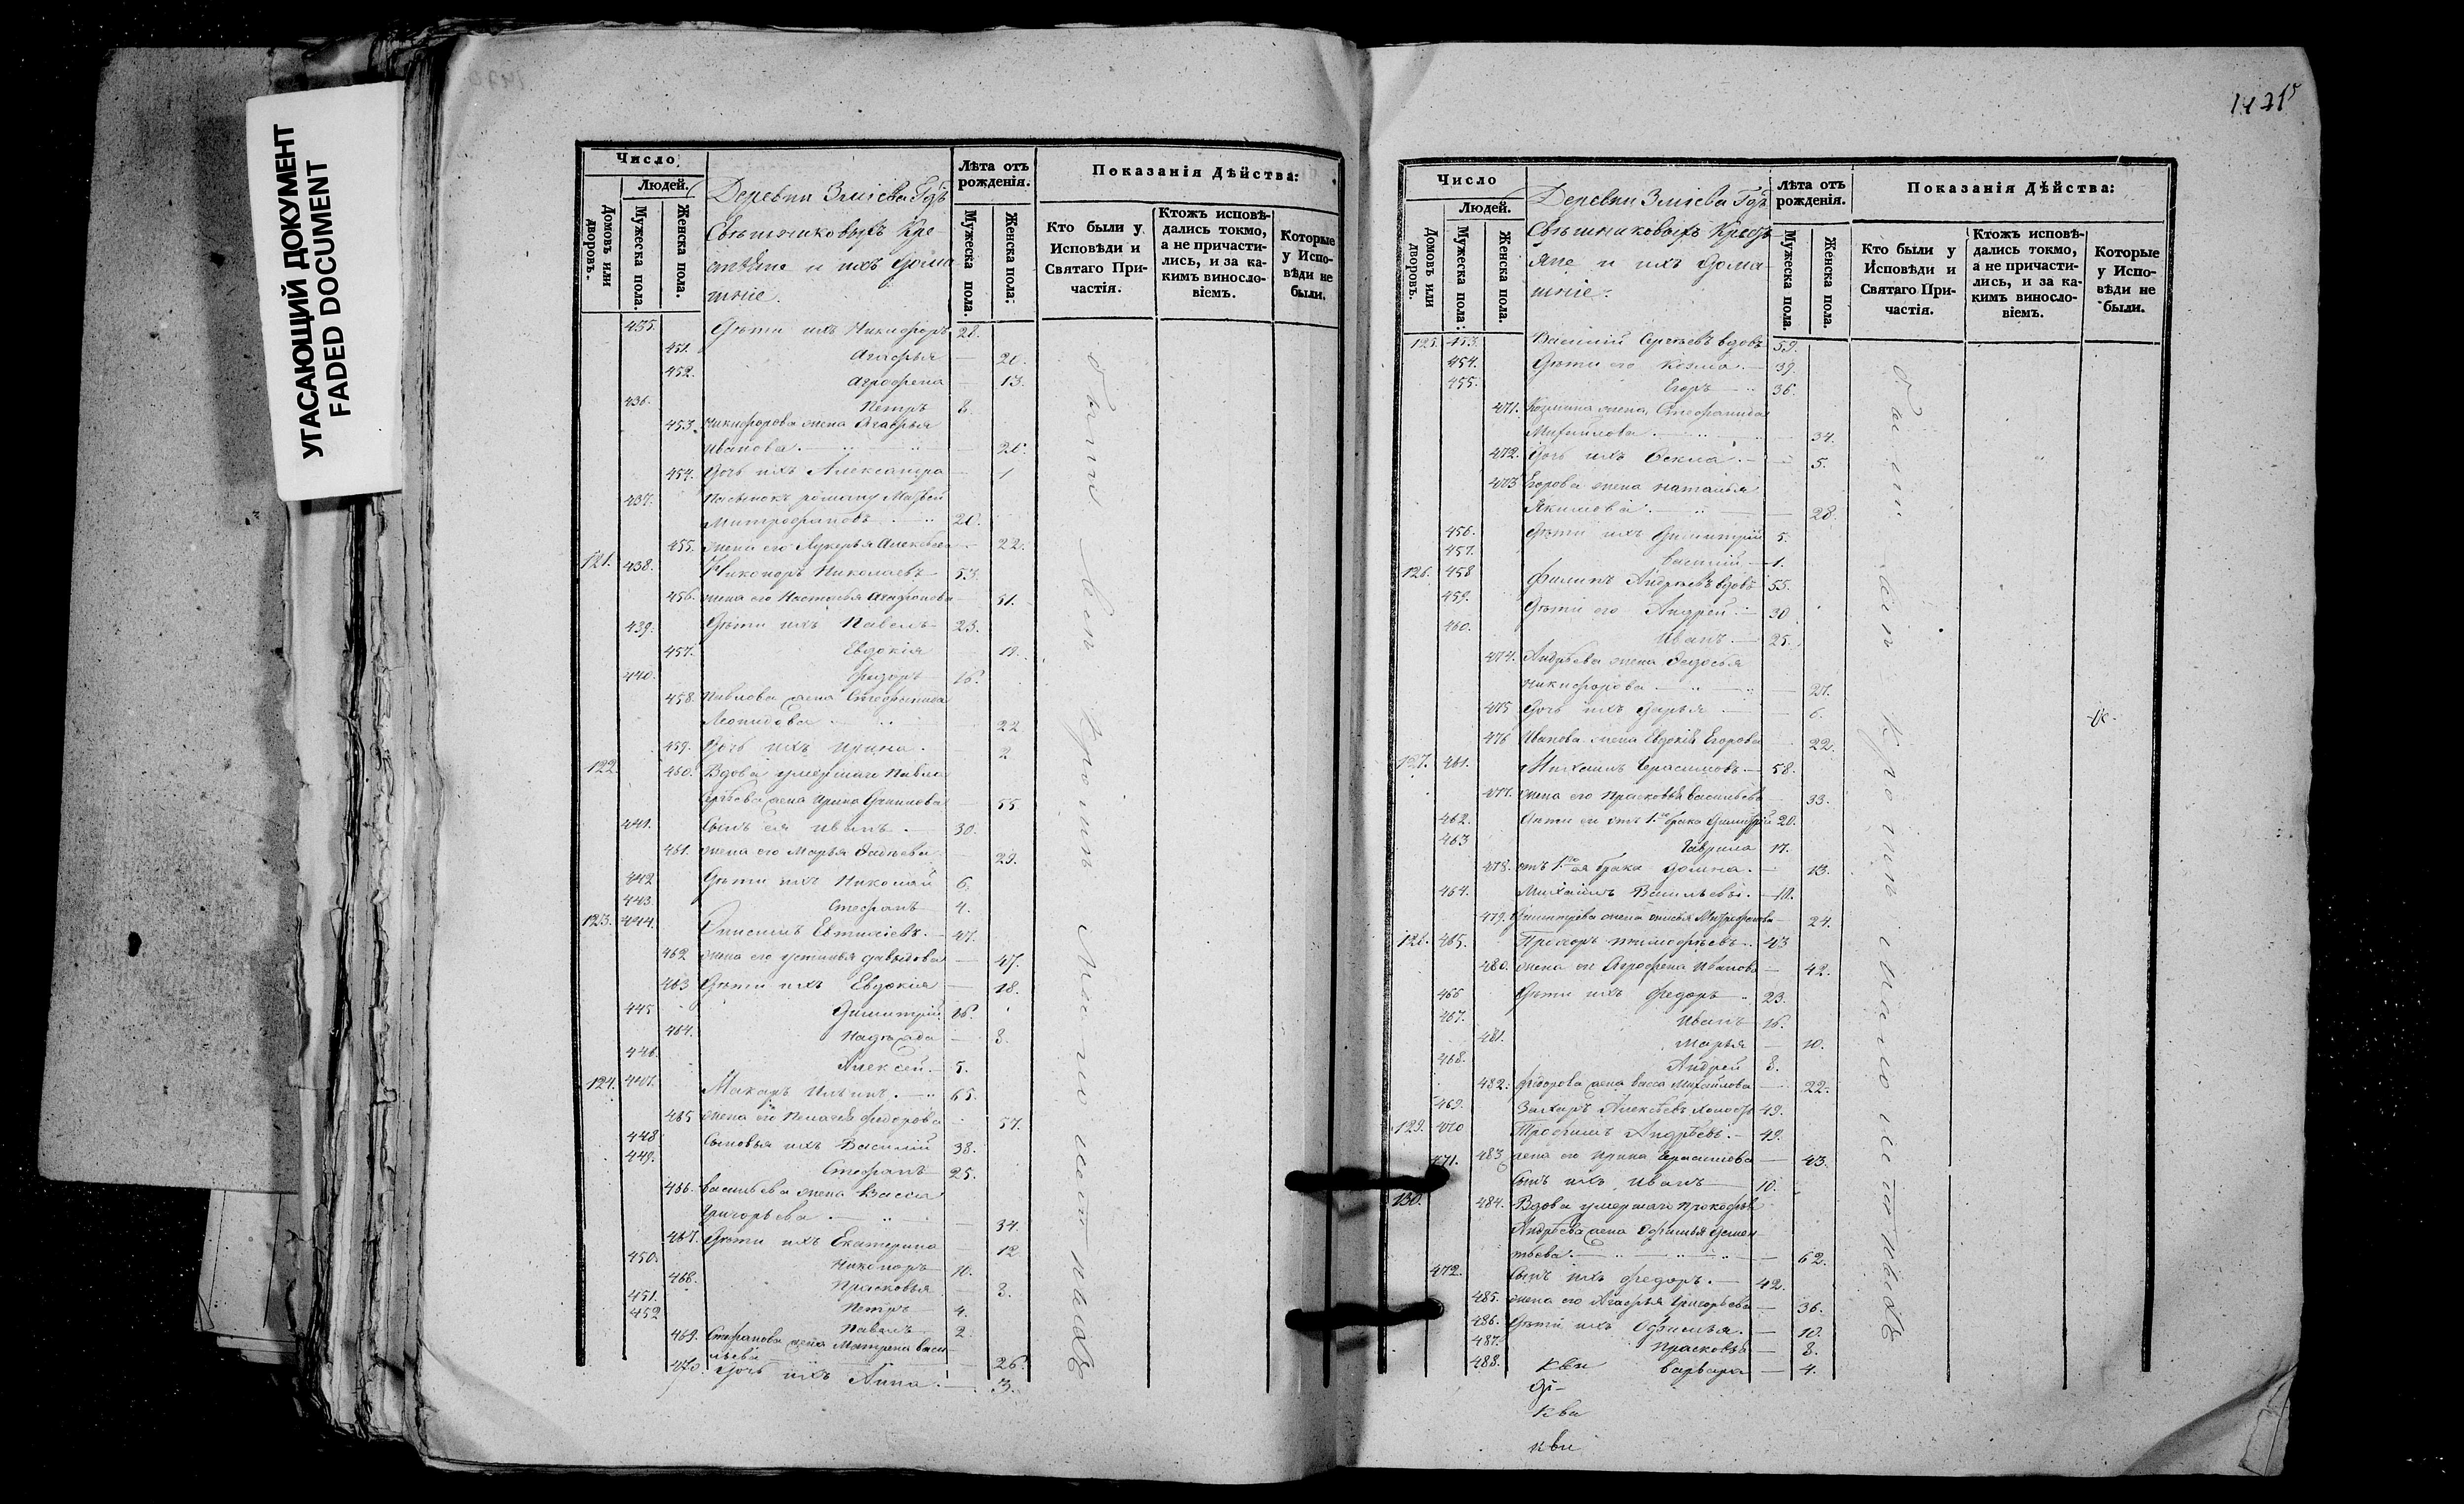 УГАСАЮЩИЙ ДОКУМЕНТ
FADED DOCUMENT
Число
Людей.
Домовъ или дворовъ.
Мужеска пола.
Женска пола.
Деревни Зміева Го͠дъ
Свѣшниковыхъ Кре-
стьяне и ихъ дома
шніе.
Лѣта отъ рожденія.
Мужеска пола.
Женска пола.
Показанія Дѣйства:
Кто были у Исповѣди и Святаго При-частія.
Ктожъ исповѣ-дались токмо, а не причасти-лись, и за ка-кимъ виносло-віемъ.
Которые у Испо-вѣди не были.
435. Дѣти ихъ Никифоръ 28.
451. Агафья — 20.
452. Агрофена — 13.
436. Петръ 8.
453. Никифорова жена Агафья
Иванова — 20.
454. Дочь ихъ Александра — 1
437. Пасынокъ Матвей
Митрофановъ 20.
455. жена его Лукерья Алексѣева — 22.
121. 438. Никоноръ Николаевъ 53.
456. жена его Настасья Агафонова 51.
439. Дѣти ихъ Павелъ 23.
457. Евдокія 19.
440. Фидоръ 16.
458. Павлова жена Стефанида
Леонидова 22
459. Дочь ихъ Ирина. 2
122. 460. Вдова умершаго Павла
жена Ирина 55
441. Сынъ ея Иванъ. 30.
461. жена его Марья Фадѣева 29.
442 Дѣти ихъ Николай 6.
443. Стефанъ 4.
123. 444. Онисимъ Евтихіевъ. 47.
462 жена его Устинья Давыдова — 47.
463 Дѣти ихъ Евдокія — 18.
445 Димитрій 16.
464. — 8.
446. Алексей 5.
124. 447. Макаръ Ильинъ. 65.
465 жена его Пелагея Фидорова 57.
448 Сыновья ихъ Василій 38.
449. Стефанъ 25.
466. Васильева жена Васса
Григорьева — 34.
467. Дѣти ихъ Екатерина 12.
450. Никоноръ 10.
468. Прасковья 8.
451. Петръ 4.
452 Павелъ 2.
469. Стефанова жена Матрена Васи-
льева 26.
470. Дочь ихъ Анна. — 3.
были вси кроми малолетныхъ
1421
Число
Людей.
Домовъ или дворовъ.
Мужеска пола:
Женска пола.
Деревни Зміева Го͠дъ
Свѣшниковыхъ Кресть
яне и ихъ дома-
шніе.
Лѣта отъ рожденія.
Мужеска пола.
Женска пола.
Показанія Дѣйства:
Кто были у Исповѣди и Святаго При-частія.
Ктожъ исповѣ-дались токмо, а не причасти-лись, и за ка-кимъ виносло-віемъ.
Которые у Испо-вѣди не были.
125. 453. Василій Сергѣевъ вдовъ 59.
454. Дѣти его Козма. 39.
455. Егоръ 36.
471. Козмина жена Стефанида
Михайлова 34.
472. Дочь ихъ Фекла. 5.
473 Егорова жена Наталья
Якимова 28.
456. Дѣти ихъ Димитрій 5.
457. Василій 1.
126. 458 Филипъ Андреевъ вдовъ 55.
459. Дѣти его Андрей 30
460. Иванъ. 25.
474. Андрѣева жена Федосья
Никифорова 27.
475 Дочь ихъ Дарья 6.
476 Иванова жена Евдокія Егорова 22.
127. 461. Михаилъ Герасимовъ 58.
477. жена его Прасковья Васильева 33.
462. Дѣти ея отъ 1.го брака Димитрій 20.
463 Гаврила 17.
478. отъ 1го ея брака Домна. 13.
464. Михаилъ Васильевъ. 18.
479. Димитріева жена Митрофанова 24.
128. 465. Прохоръ Тимофѣевъ. 43
480. жена ег Агрофена Иванова 42.
466 Дѣти ихъ Федоръ 23.
467. Иванъ 16.
481. Марья 10.
468. Андрей 8.
482. Фидорова жена Васса Михайлова 22.
469. Захаръ Алексѣевъ холостъ 49.
129. 470 Трофимъ Андрѣевъ. 49.
483 жена его Ирина Герасимова 43.
471. Сынъ ихъ Иванъ 10.
130. 484. Вдова умершаго Прокофья
Андрѣева жена Офимья Демен-
тьева. 62.
472. Сынъ ихъ Федоръ. 42.
485. жена его Агафья Григорьева 36.
486. Дѣти ихъ Офимья. 10.
487. Прасковья 8.
488. Варвара 4.
были вси кроми малолѣтныхъ